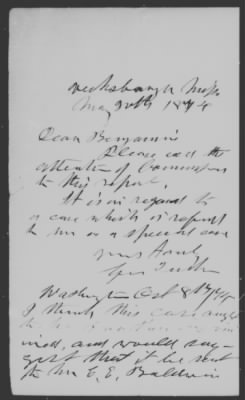 Vicksburgh Miss
May 30th 1874
Dear Benjamin
Please call the
attention of Commrs
to this report.
It is in regard to
a case which is report
to me as a special case
yours truly
Washington Oct 8 1874
I think this case ought
to be
ined, and would sug-
gest that it be sent
to Mr E. E. Baldwin